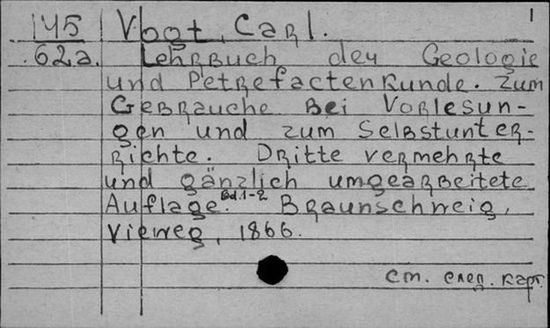 1
145 Vogt, Carl.
62a. Lehrbuch der Geologie
und Petrefactenkunde. Zum
Gebrauche bei Vorlesun-
gen und zum Selbstunter-
richte. Dritte vermehrte
und gänzlich umgearbeitete
Auflage. Bd.1-2 Braunschweig,
Vieweg, 1866.
см. след. карт.